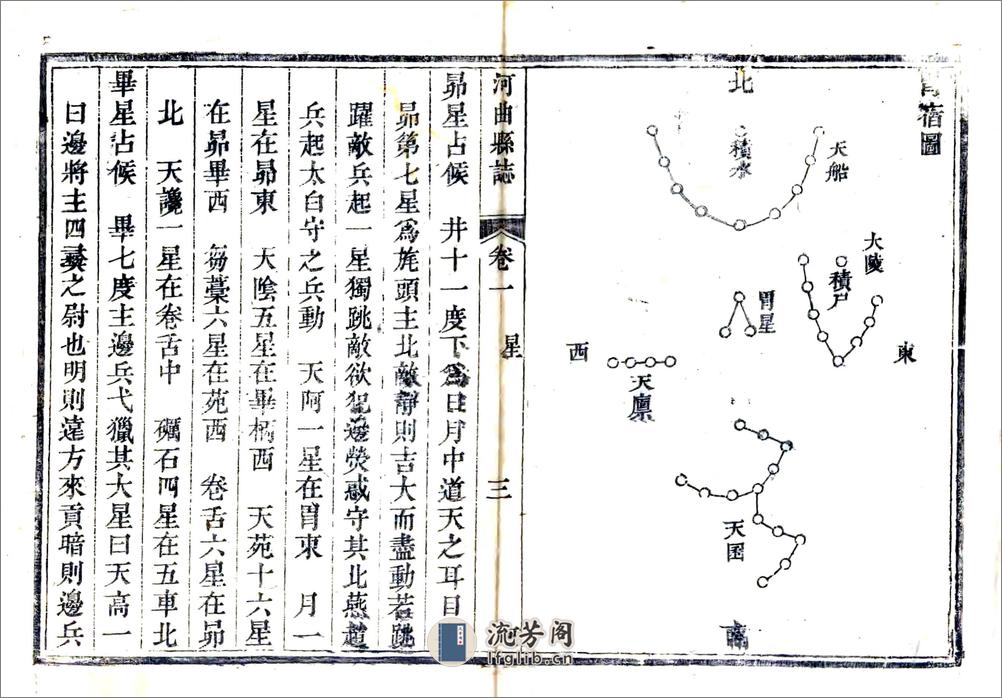 胃宿圖
北
天船
積水
大陵
積尸
胃星
東
西
天廩
天囷
南
河曲縣誌
卷一
星
三
昴星占候　井十一度下爲日月中道天之耳目
昴第七星爲旄頭主北敵靜則吉大而盡動若跳
躍敵兵起一星獨跳敵欲犯邊熒惑守其北燕趙
兵起太白守之兵動　天阿一星在胃東　月一
星在昴東　天陰五星在畢柄西　天苑十六星
在昴畢西　芻藁六星在苑西　卷舌六星在昴
北　天讒一星在卷舌中　礪石四星在五車北
畢星占候　畢七度主邊兵弋獵其大星曰天高一
曰邊將主四夷之尉也明則遠方來貢暗則邊兵
流芳阁
lfglib.cn